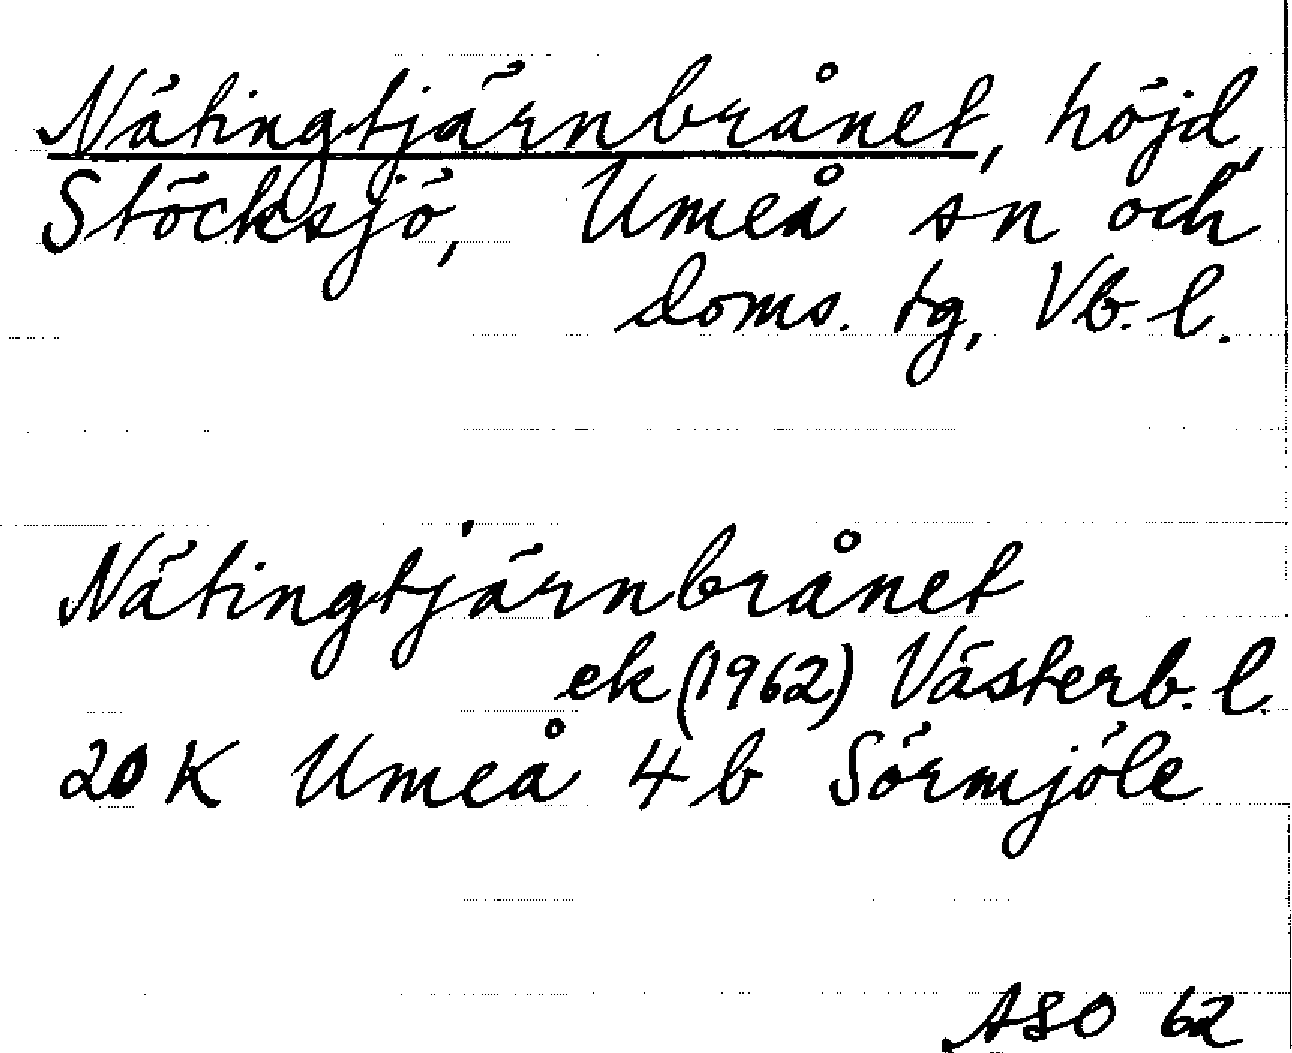 Nätingtjärnbrånet, höjd,
Stöcksjö, Umeå sn och
doms. tg, Vb. l.
Nätingtjärnbrånet
ek (1962) Västerb. l.
20 K Umeå 4 b Sörmjöle
ASO 62